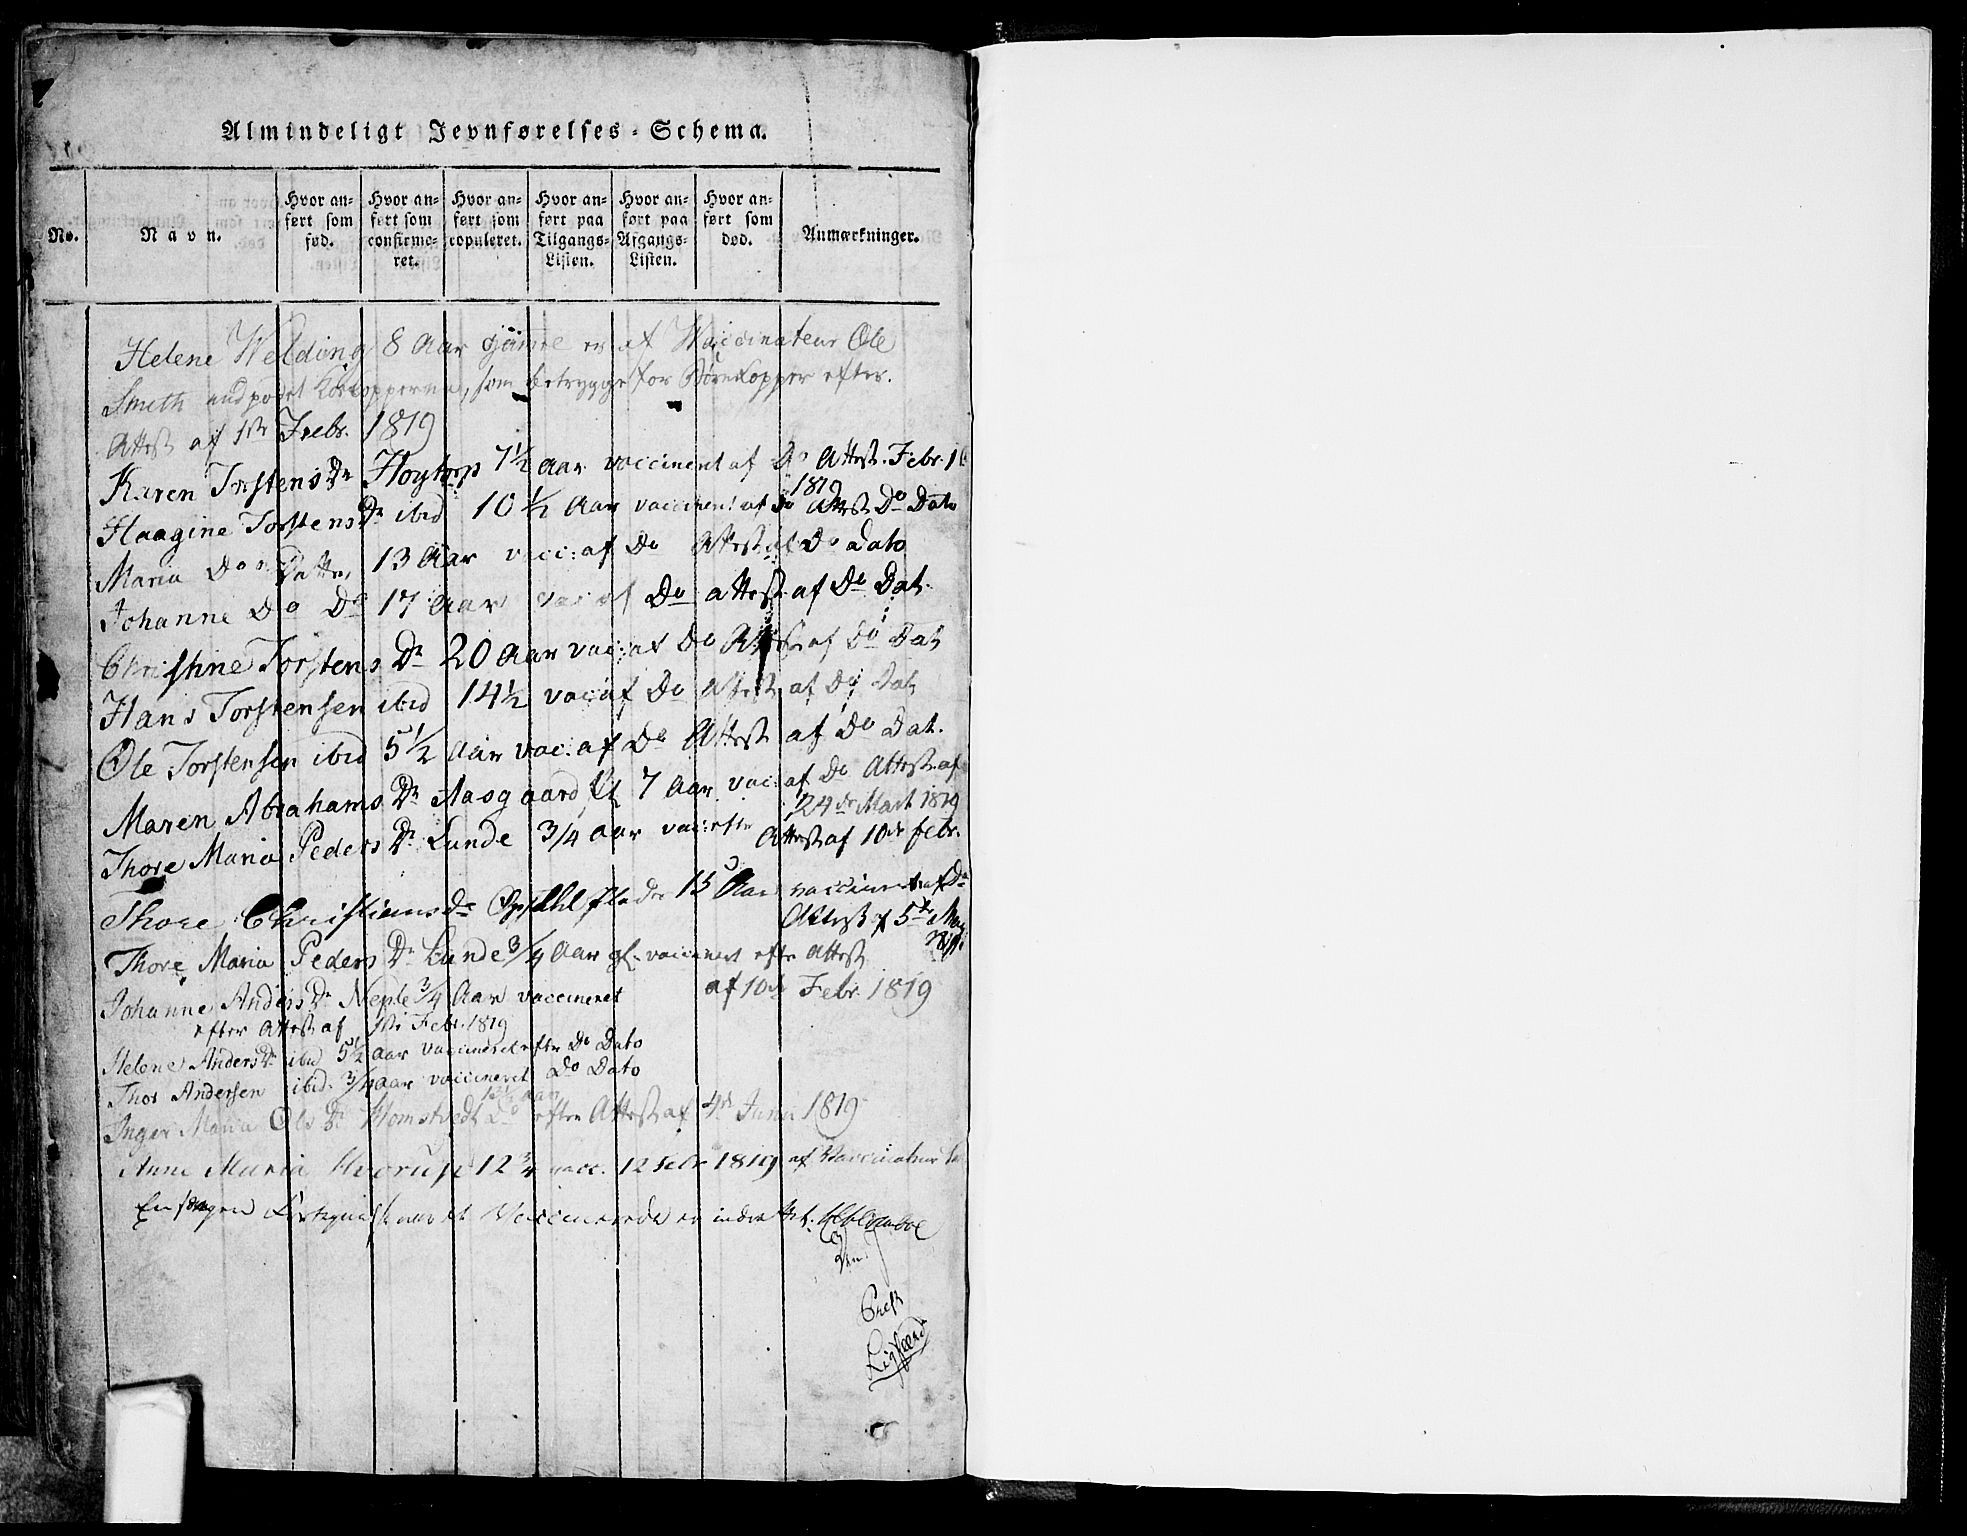 Almindeligt Jevnførelses-Schema.
No.
Navn.
Hvor anført som fød.
Hvor anført som confirmeret.
Hvor anført som copuleret.
Hvor anført paa Tilgangs-Listen.
Hvor anført paa Afgangs-Listen.
Hvor anført som død.
Anmærkninger.
Helene Welding 8 Aar er af Vaccinateur Ole
Smith indpodet Kokopperne, som betrygge for Børnekopper efter
Attest af 1ste Febr. 1819
Karen Torstens Dr Hoytorp 7½ Aar vaccineret af Do Attest Febr. 1
1819
Haagine Torstens Dr ibid 10½ Aar vaccinert af do Attest Do Dato
Maria Do Datter 13 Aar vacc: af Do Attest af Do Dato
Johanne Do Do 17 Aar vac af Do attest af Do Dat.
Christine Torstens Dr 20 Aar vac: af Do Attest af Do Dat
Hans Torstensen ibid 14½ vac: af Do Attest af Do Dat
Ole Torstensen ibid 5½ Aar vac: af Do Attest af Do Dat.
Maren Abrahams Dr Aasgaard 7 Aar vac: af Do Attest af
24de Mart 1819
Thore Maria Peders Dr Lunde 3/4 Aar vac: efter Attest af 10de febr.
Thore Christians Dr Opsahl 15 Aar vaccineret af Do
Attest af 5te
1819
Thore Maria Peders Dr Lunde 3/4 Aar gl. vaccineret efter Attest
af 10de Febr. 1819
Johanne Anders Dr Neple 3/4 Aar vaccineret
efter Attest af 1ste Febr. 1819
Helene Anders Dr ibid 5½ aar vaccineret efter Do Dato
Thor Andersen ibid. 3/4 aar vaccineret Do Dato
12½ aar
Inger Maria Ols Dr Homstvedt Do efter Attest af 4de Juni 1819
Anne Maria Hvorup 12 3/4 vacc. 12 Febr 1819 af Vaccinateur
En over Vaccinerede er
Præst